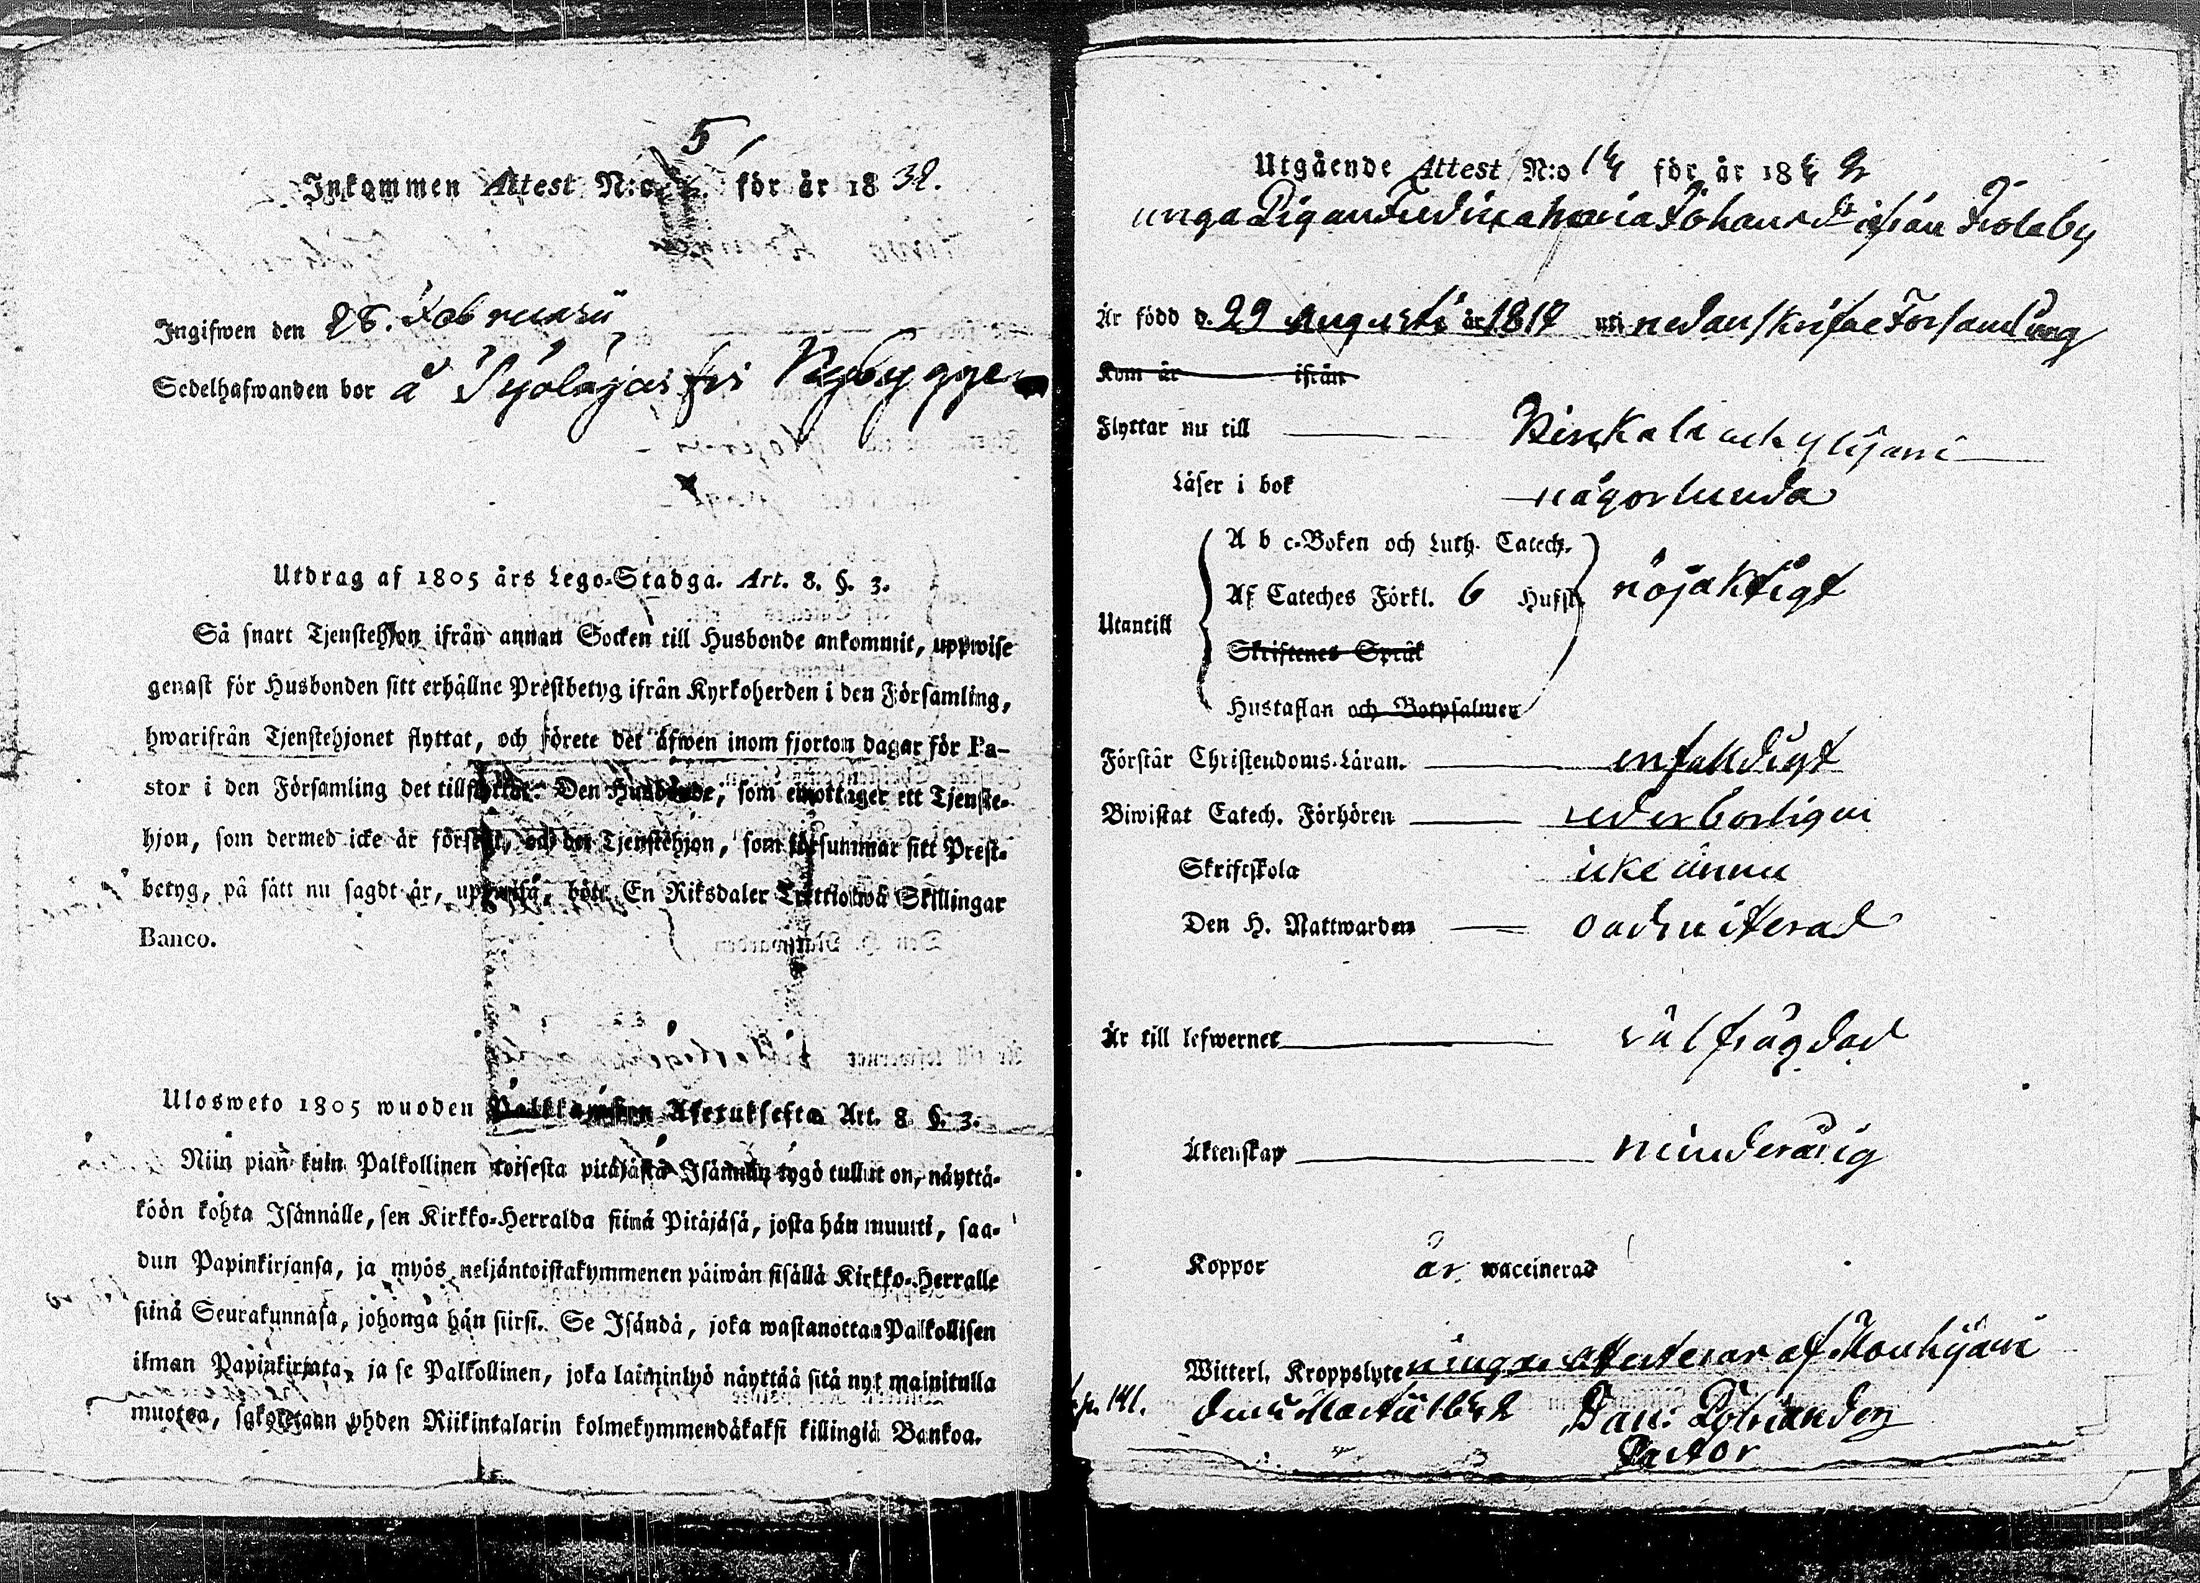 5
Inkommen Attest N:o för år 18 32.
Ingifwen den 26. Februarii
Sedelhafwanden bor å Nybygge
Utdrag af 1805 års Lego-Stadga. Art. 8. §. 3.
Så snart Tjenstehjon ifrån annan Socken till Husbonde ankommit, uppwise
genast för Husbonden sitt erhållne Prestbetyg ifrån Kyrkoherden i den Församling,
hwarifrån Tjenstehjonet flyttat, och förete det äfwen inom fjorton dagar för Pa-
stor i den Församling det tillflyttat. Den Husbonde, som emottager ett Tjenste-
hjon, som dermed icke är försedt, och det Tjenstehjon, som försummar sitt Prest-
betyg, på sätt nu sagdt är, uppwisa, böte En Riksdaler Trettiotwå Skillingar
Banco.
Ulosweto 1805 wuoden Palkkawäen Asetuksesta Art. 8 §. 3.
Niin pian kuin Palkollinen toisesta pitäjästä Isännän tygö tullut on, näyttä-
köön kohta Isännälle, sen Kirkko-Herralda siinä Pitäjäsä, josta hän muutti, saa-
dun Papinkirjansa, ja myös neljäntoistakymmenen päiwän sisällä Kirkko-Herralle
siinä Seurakunnasa, johonga hän siirsi. Se Isändä, joka wastanottaa Palkollisen
ilman Papinkirjata, ja se Palkollinen, joka laiminlyö näyttää sitä nyt mainitulla
muotoa, sakotetaan yhden Riikintalarin kolmekymmendäkaksi killingiä Bankoa.
Utgående Attest N:o för år 18 2
unga Pigan Maria Johansdr ifrån
Är född d. 29 Augusti år 1817 uti nedanskrifne Församling
Kom år ifrån
Flyttar nu till
Läser i bok någorlunda
A b c-Boken och Luth. Catech.
Af Cateches Förkl. 6 Hufst. nöjaktigt
Utantill
Skriftenes Språk
Hustaflan och Botpsalmer
Förstår Christendoms-Läran. enfaldigt
Biwistat Catech. Förhören wederborligen
Skriftskola icke ännu
Den H. Nattwarden oadmitterad
Är till lefwernet välfrägdad
Äktenskap minderårig
Koppor är waccinerad
Witterl. Kroppslyte attesterar af Mouhijärvi
141. den Martii Dan: Polviander
Pastor